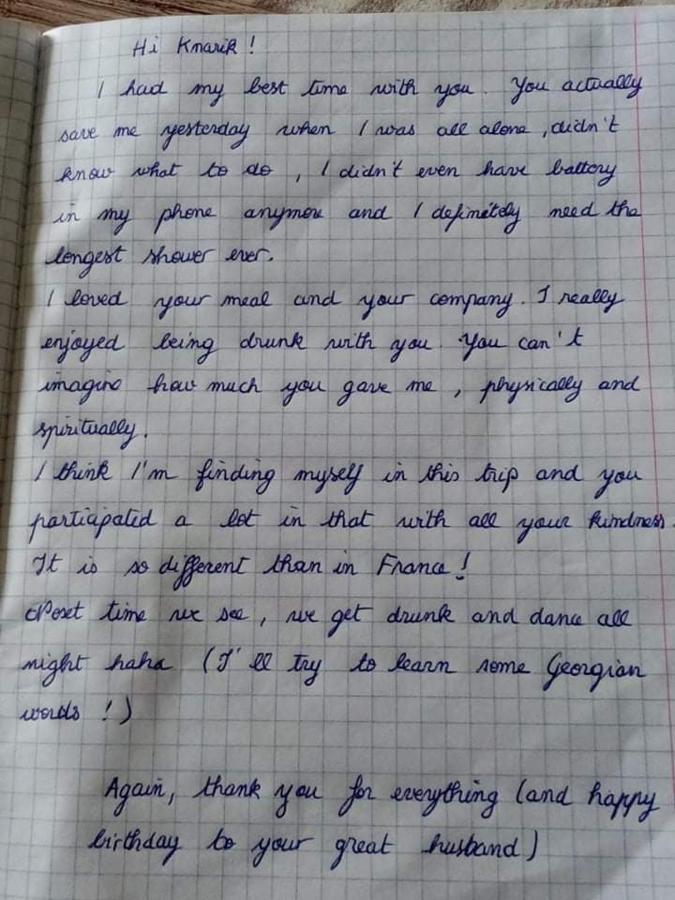 Hi Knarik !
I had my best time with you. You actually
save me yesterday when I was all alone, didn't
know what to do, I didn't even have battery
in my phone anymore and I definitely need the
longest shower ever.
I loved your meal and your company. I really
enjoyed being drunk with you. You can't
imagine how much you gave me, physically and
spiritually.
I think I'm finding myself in this trip and you
participated a lot in that with all your kindness.
It is so different than in France !
Next time we see, we get drunk and dance all
night haha (I'll try to learn some Georgian
words !)
Again, thank you for everything (and happy
birthday to your great husband)